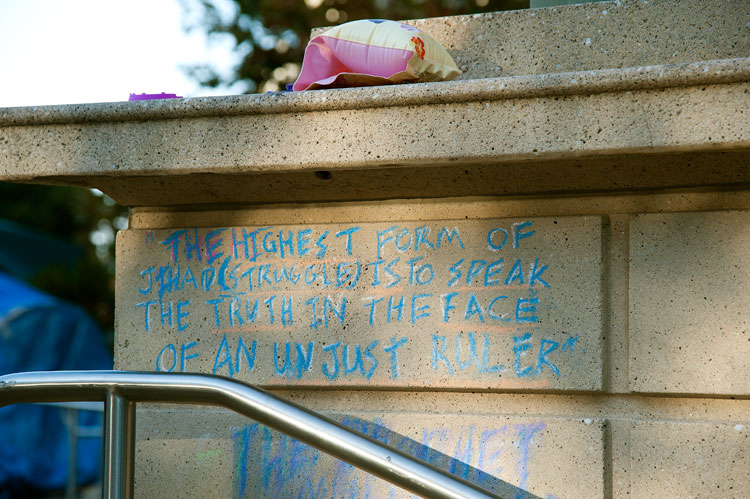 "THE HIGHEST FORM OF
JIHAD (STRUGGLE) IS TO SPEAK
THE TRUTH IN THE FACE
OF AN UNJUST RULER"
THE